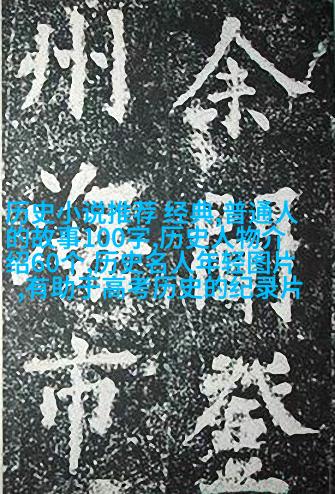 余聞登
州海市
历史小说推荐 经典,普通人
的故事100字,历史人物介
绍60个,历史名人年轻图片
,有助于高考历史的纪录片